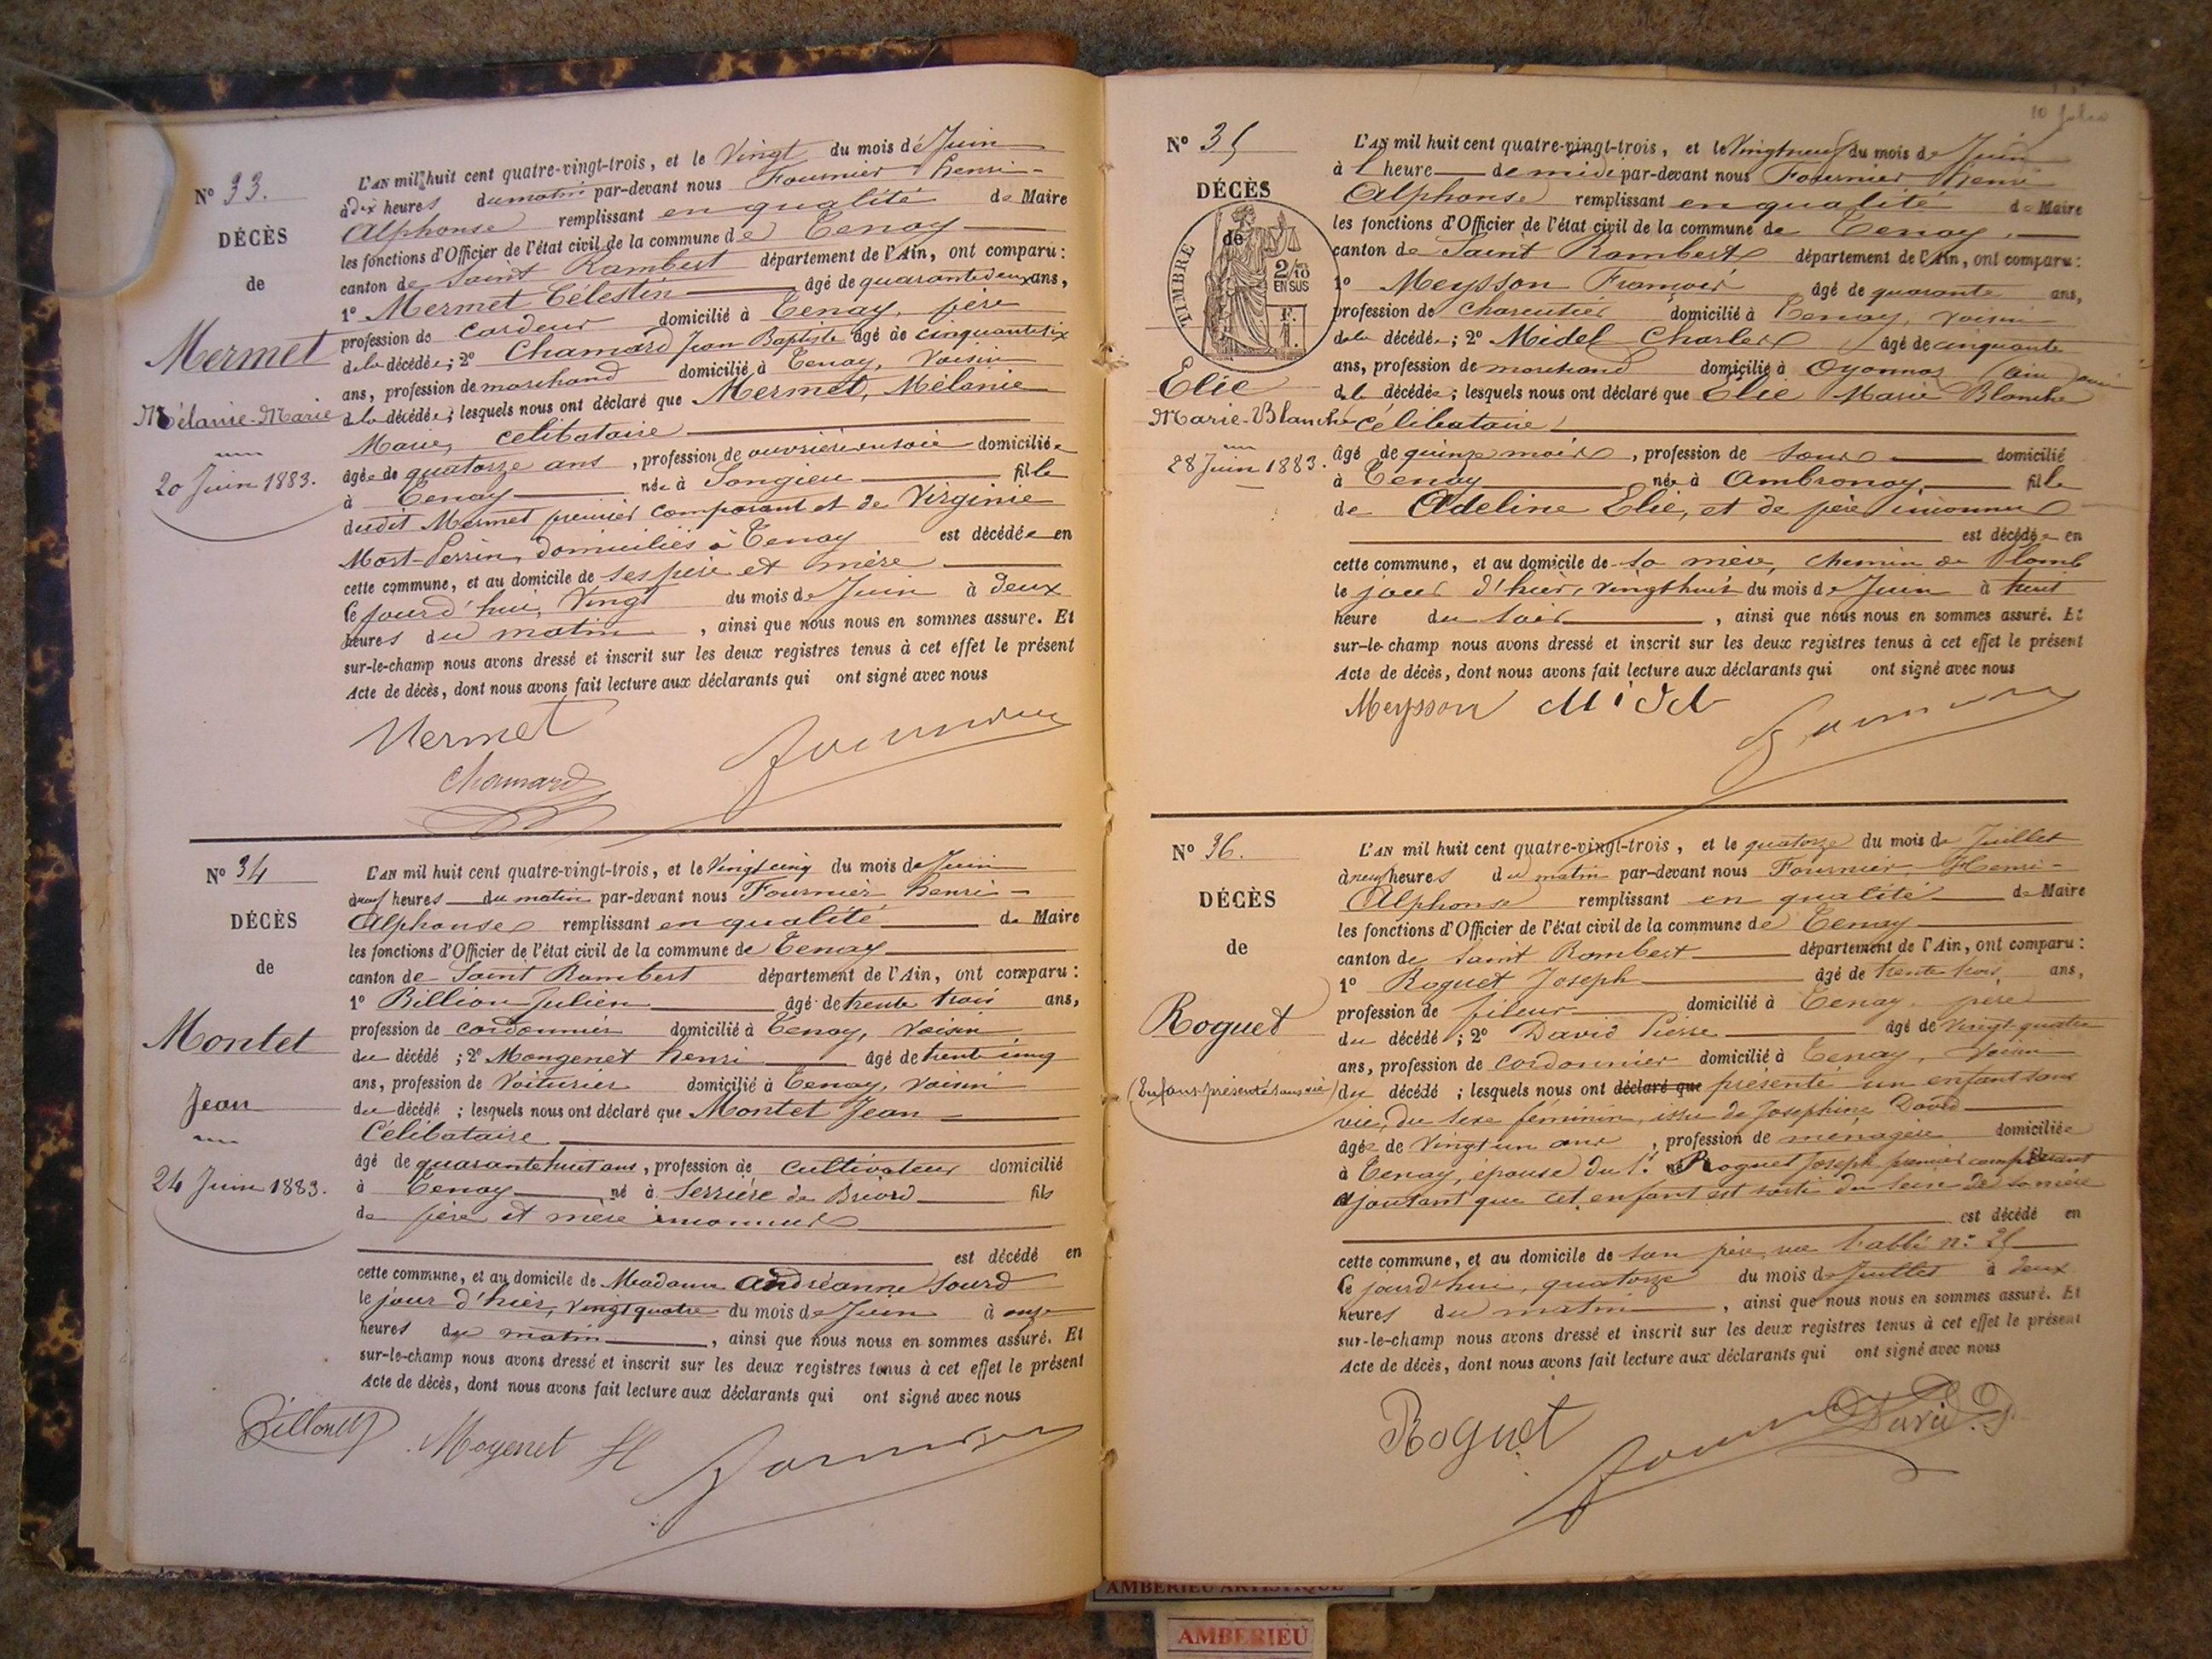 Nº 33.
DÉCÈS
de
Mermet
Mélanie-Marie
20 Juin 1883.
L'AN mil huit cent quatre-vingt-trois, et le Vingt du mois de Juin
à dix heures du matin par-devant nous Fournier Henri-
Alphonse remplissant en qualité de Maire
les fonctions d'Officier de l'état civil de la commune de Tenay
canton de Saint Rambert département de l'Ain, ont comparu:
1º Mermet Célestin âgé de quarante deux ans,
profession de cardeur domicilié à Tenay, père
de la décédée; 2º Chamard Jean Baptiste âgé de cinquante six
ans, profession de marchand domicilié à Tenay, Voisin
de la décédée; lesquels nous ont déclaré que Mermet, Mélanie
Marie, célibataire
âgée de quatorze ans, profession de ouvrière en soie domiciliée
à Tenay née à Songieu fille
dudit Mermet premier comparant et de Virginie
Mort-Perrin, domiciliés à Tenay est décédée en
cette commune, et au domicile de ses père et mère
Ce jourd'hui, Vingt du mois de Juin à deux
heures du matin, ainsi que nous nous en sommes assuré. Et
sur-le-champ nous avons dressé et inscrit sur les deux registres tenus à cet effet le présent
Acte de décès, dont nous avons fait lecture aux déclarants qui ont signé avec nous
Mermet
Chamard
Fournier
Nº 34
DÉCÈS
de
Montet
Jean
24 Juin 1883.
L'AN mil huit cent quatre-vingt-trois, et le Vingt cinq du mois de Juin
à neuf heures du matin par-devant nous Fournier, Henri-
Alphonse remplissant en qualité de Maire
les fonctions d'Officier de l'état civil de la commune de Tenay
canton de Saint Rambert département de l'Ain, ont comparu:
1º Billion Julien âgé de trente trois ans,
profession de cordonnier domicilié à Tenay, Voisin
du décédé; 2º Mongenet Henri âgé de trente cinq
ans, profession de Voiturier domicilié à Tenay, Voisin
du décédé; lesquels nous ont déclaré que Montet Jean
Célibataire
âgé de quarante huit ans, profession de cultivateur domicilié
à Tenay né à Serrière de Briord fils
de père et mère inconnus
est décédé en
cette commune, et au domicile de Madame Andréanne Sourd
le jour d'hier, vingt quatre du mois de Juin à onze
heures du matin, ainsi que nous nous en sommes assuré. Et
sur-le-champ nous avons dressé et inscrit sur les deux registres tenus à cet effet le présent
Acte de décès, dont nous avons fait lecture aux déclarants qui ont signé avec nous
Mogenet H
Fournier
10 folio
Nº 35
DÉCÈS
de
TIMBRE
2/10
EN SUS
Elie
Marie-Blanche
28 Juin 1883.
L'AN mil huit cent quatre-vingt-trois, et le Vingt neuf du mois de Juin
à l heure de midi par-devant nous Fournier Henri
Alphonse remplissant en qualité de Maire
les fonctions d'Officier de l'état civil de la commune de Tenay
canton de Saint Rambert département de l'Ain, ont comparu:
1º Meysson François âgé de quarante ans,
profession de charcutier domicilié à Tenay, voisin
de la décédée; 2º Midel Charles âgé de cinquante
ans, profession de marchand domicilié à Oyonnax (Ain) ami
de la décédée; lesquels nous ont déclaré que Elie Marie Blanche
célibataire
âgé de quinze mois, profession de sans domicilié
à Tenay née à Ambronay fille
de Adeline Elie, et de père inconnu
est décédée en
cette commune, et au domicile de sa mère, chemin de Plomb
le jour d'hier, vingt huit du mois de Juin à huit
heure du soir, ainsi que nous nous en sommes assuré. Et
sur-le-champ nous avons dressé et inscrit sur les deux registres tenus à cet effet le présent
Acte de décès, dont nous avons fait lecture aux déclarants qui ont signé avec nous
Meysson Midel
Fournier
Nº 36.
DÉCÈS
de
Roguet
(Enfant présenté sans vie)
L'AN mil huit cent quatre-vingt-trois, et le quatorze du mois de Juillet
à neuf heures du matin par-devant nous Fournier, Henri-
Alphonse remplissant en qualité de Maire
les fonctions d'Officier de l'état civil de la commune de Tenay
canton de Saint Rambert département de l'Ain, ont comparu:
1º Roguet Joseph âgé de trente trois ans,
profession de fileur domicilié à Tenay, père
du décédé; 2º David Pierre âgé de vingt quatre
ans, profession de cordonnier domicilié à Tenay, Voisin
du décédé; lesquels nous ont déclaré que présenté un enfant sans
vie, du sexe féminin, issu de Joséphine David
âgée de Vingt un ans, profession de ménagère domiciliée
à Tenay, épouse du S. Roguet Joseph premier comparant
ajoutant que cet enfant est sorti du sein de sa mère
est décédé en
cette commune, et au domicile de son père, rue l'abbé nº 25
Ce jourd'hui, quatorze du mois de Juillet à deux
heures du matin, ainsi que nous nous en sommes assuré. Et
sur-le-champ nous avons dressé et inscrit sur les deux registres tenus à cet effet le présent
Acte de décès, dont nous avons fait lecture aux déclarants qui ont signé avec nous
Roguet
David P.
Fournier
AMBERIEU ARTISTIQUE
AMBERIEU